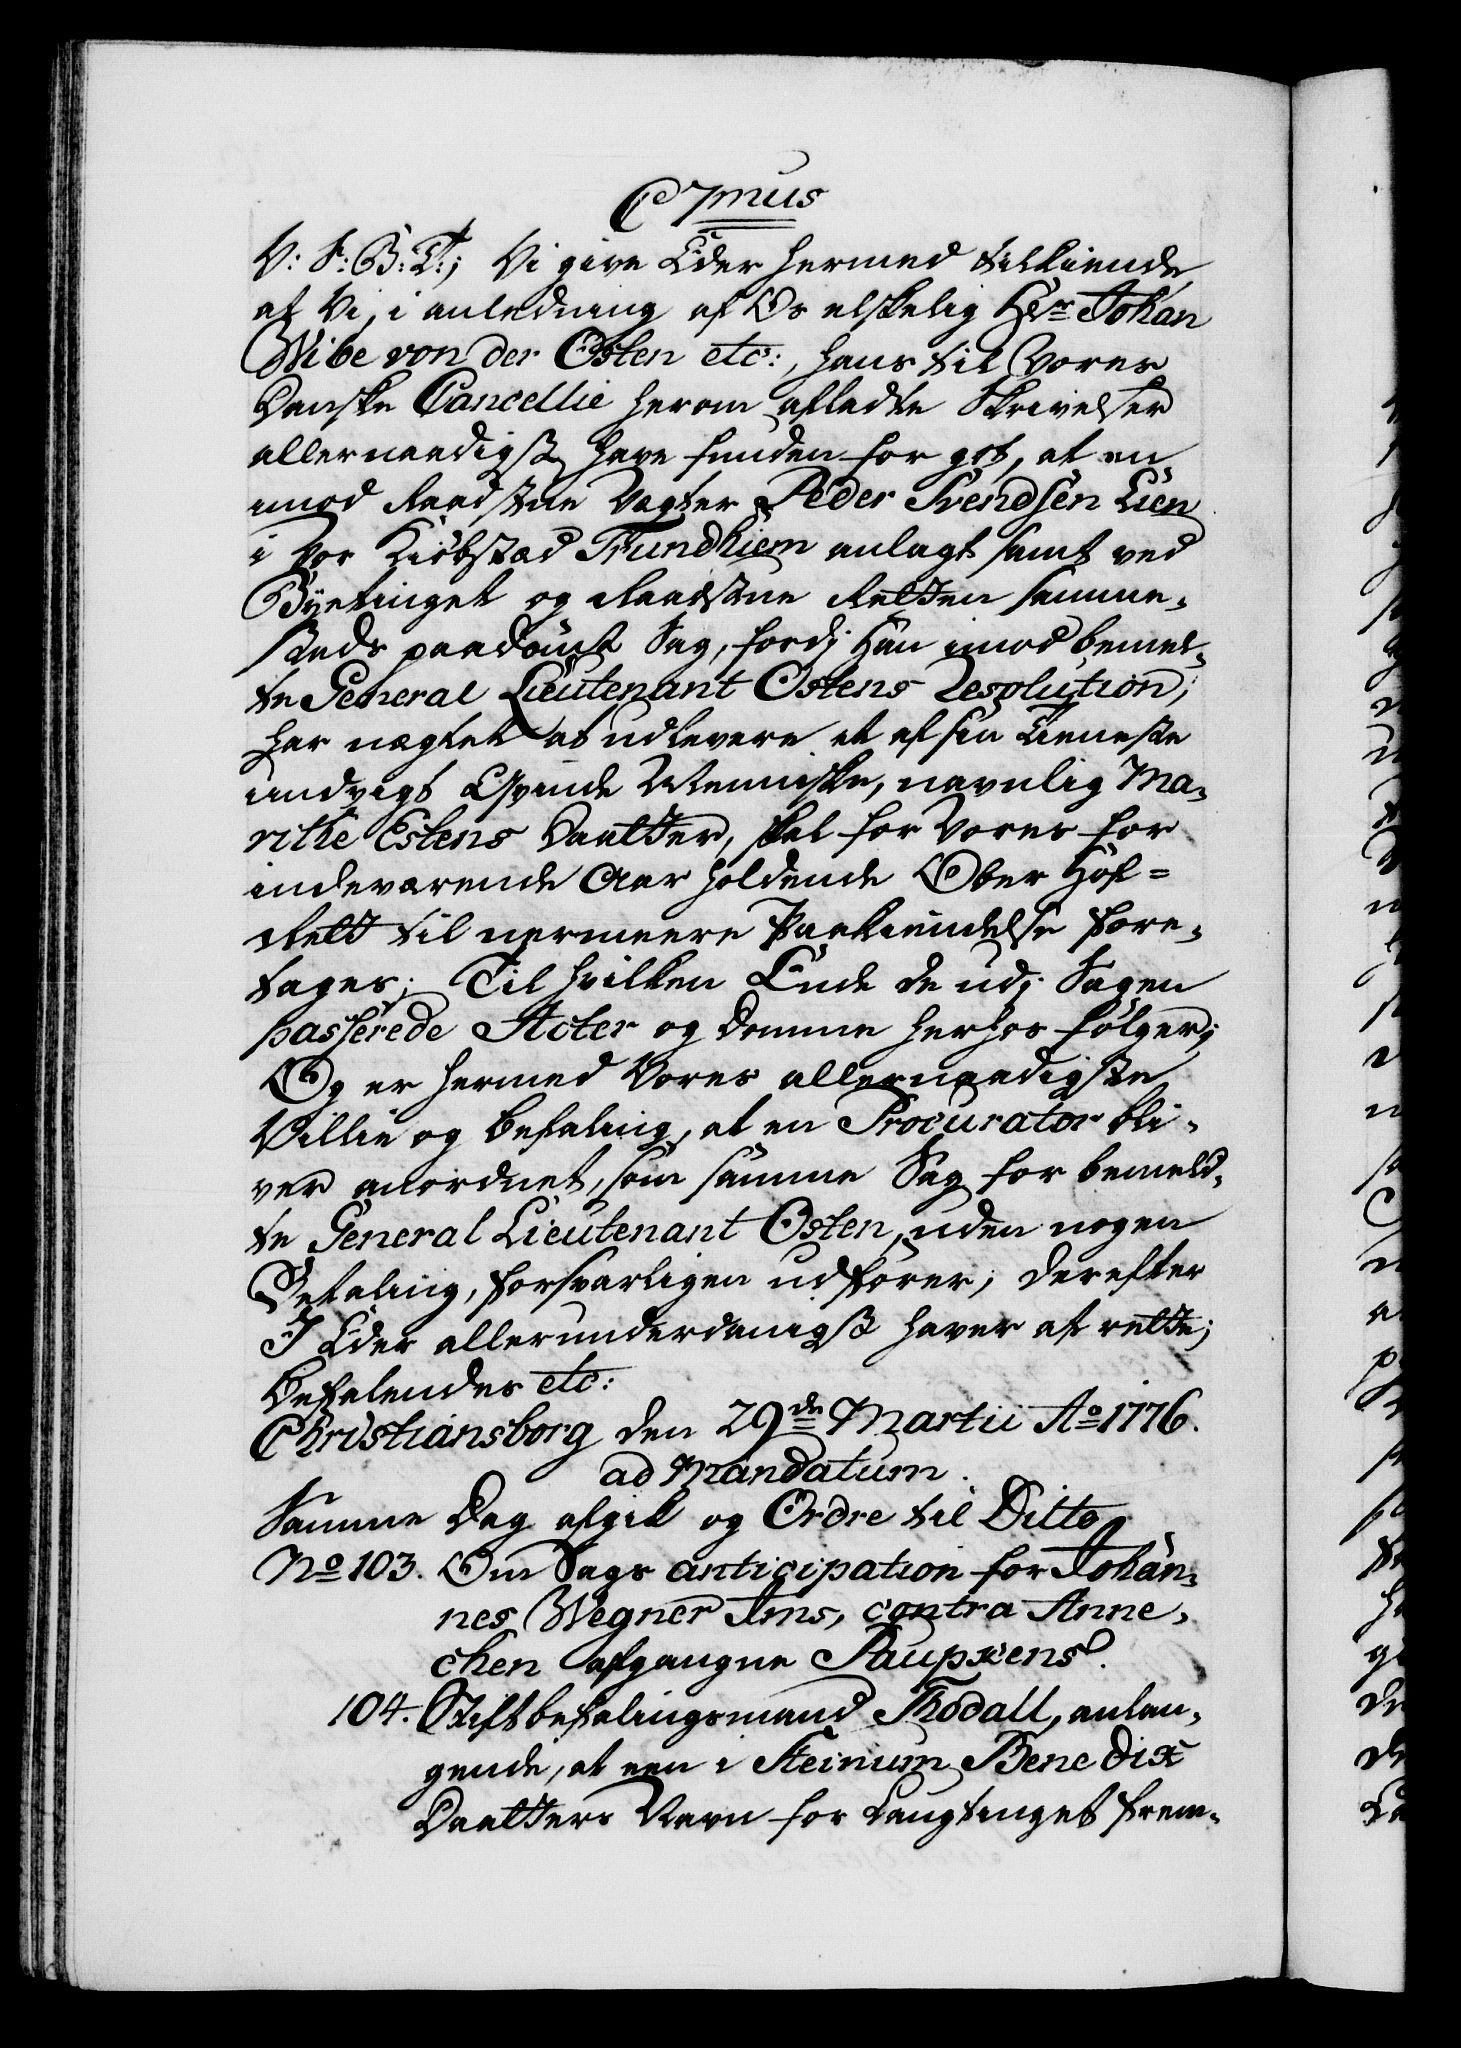 C 7mus
V: S: B: T:; Vi give Eder hermed tilkiende
at Vi, i anledning af Os elskelig Hr: Johan
Wibe von der Osten etc:, hans til Vores
Danske Cancellie herom afladte Skrivelser
allernaadigst have funden for got, at en
imod Raadstue Vagter Peder Svendsen Lien
i vor Kiøbstæd Trundhiem anlagt samt ved
Byetinget og Raadstue Retten samme,
steds paadømt Sag, fordi Han imod bemel,
te General Lieutenant Ostens Resolution,
har nægtet at udlevere et af sin Tieneste
undvigt Qvinde Menniske, navnlig Ma,
rithe Estens Daatter, skal for Vores for
indeværende Aar holdende Ober Hof=
Rett til nermere Paakiendelse fore,
tages; Til hvilken Ende de udi Sagen
passerede Acter og Domme herhos følger;
Og er hermed Vores allernaadigste
Villie og befaling, at en Procurator bli,
ver anordnet, som samme Sag for bemeld,
te General Lieutenant Osten, uden nogen
Betaling, forsvarligen udfører; derefter
I Eder allerunderdanigst haver at rette;
Befalendes etc:
Christiansborg den 29de Martii Ao 1776.
ad Mandatum.
Samme Dag afgik og Ordre til Ditto
No 103. Om Sags anticipation for Johan,
nes Wegner Ims, contra Anne,
chen afgangne
104. Stiftbefalingsmand Thodall, anlan,
gende, at een i Steinum Benedix
Daatters Navn for Laugtinget frem,